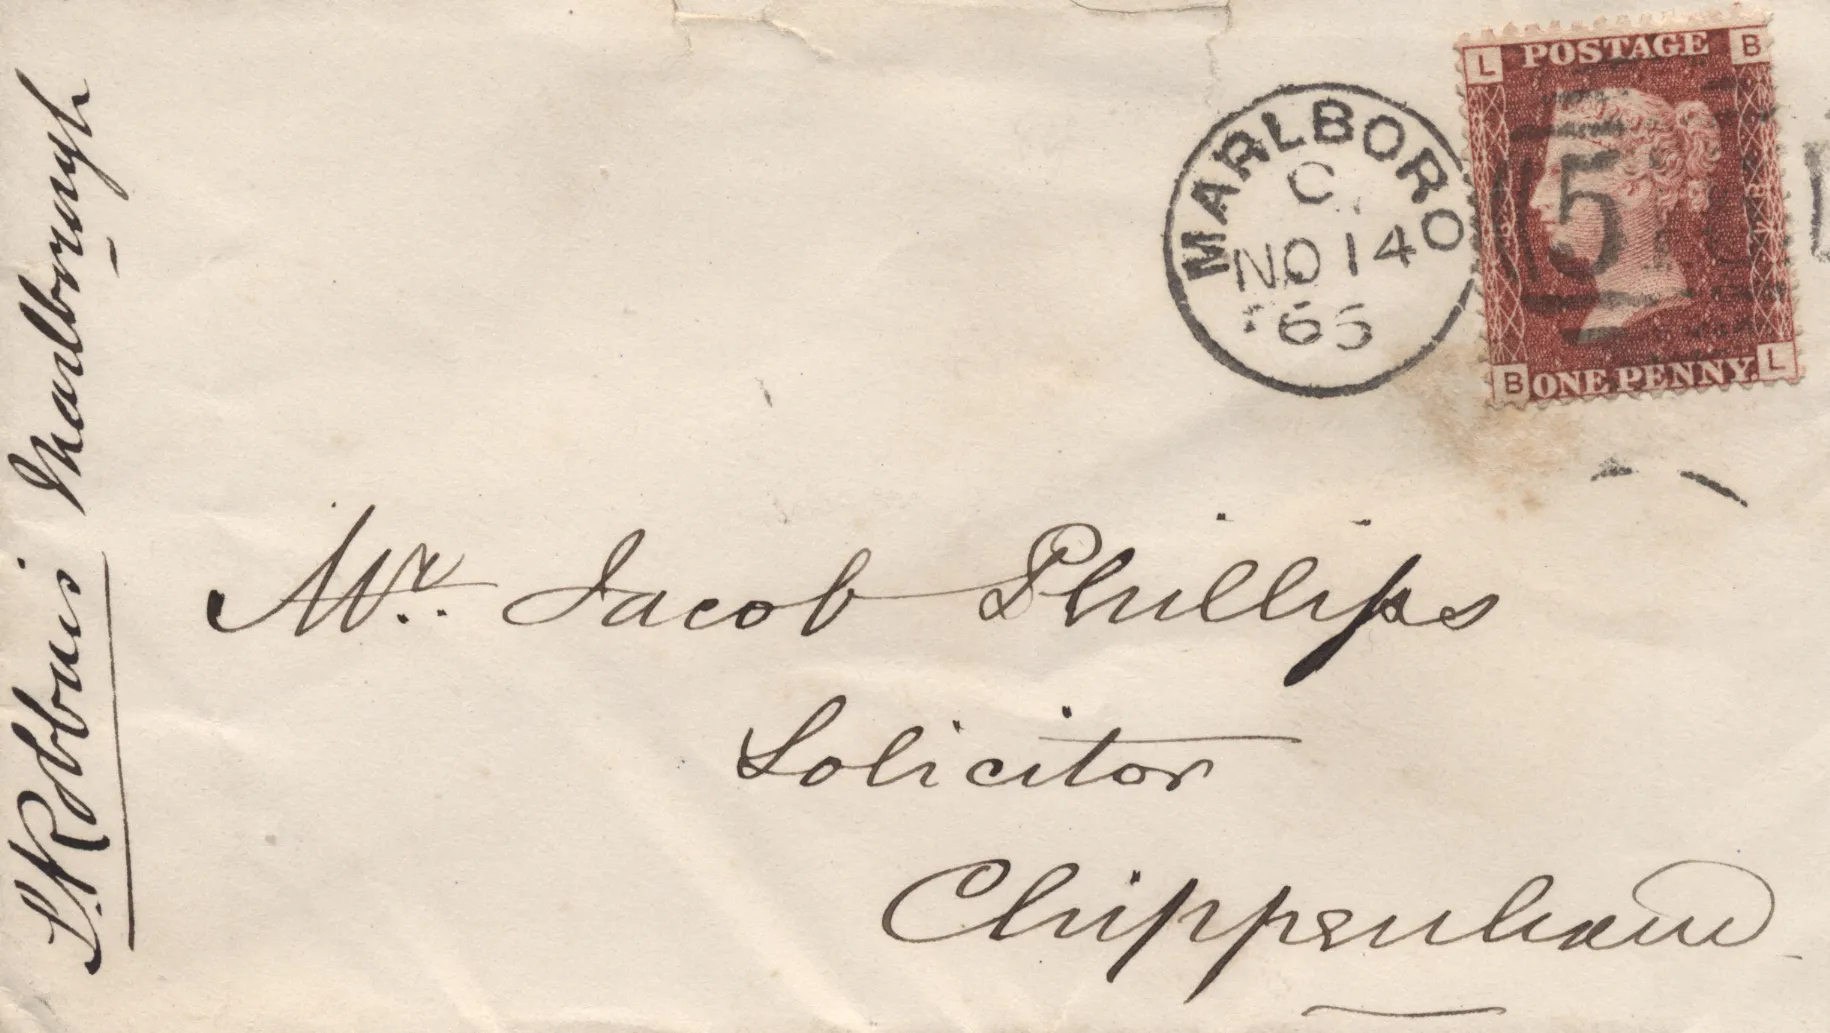 L POSTAGE B
MARLBORO
C
NO 14
65
5
B ONE PENNY L
Mr. Jacob Phillips
Solicitor
Chippenham
Robbins Marlborough